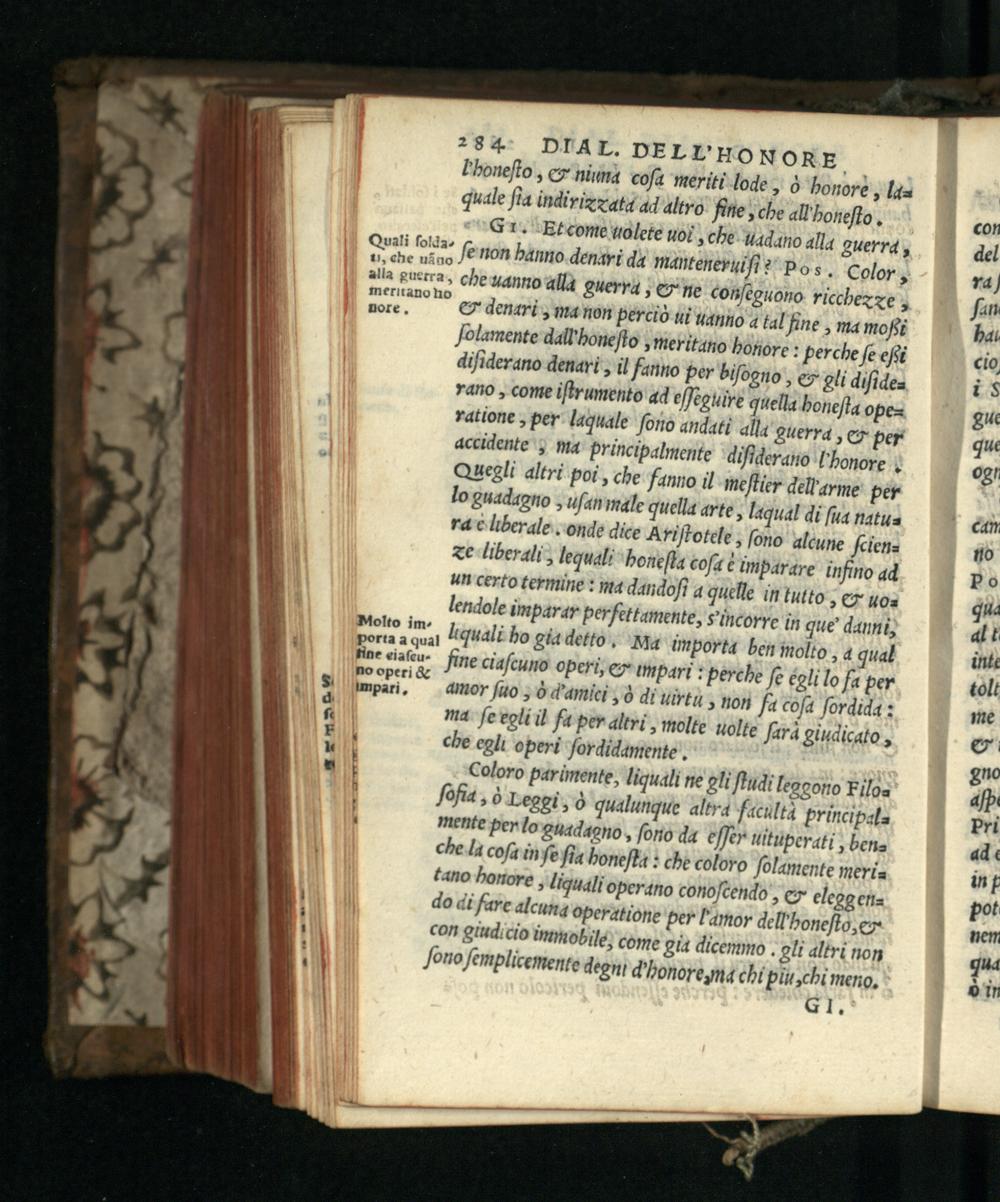 284 DIAL. DELL'HONORE
l'honeſto, & niuna coſa meriti lode, ò honore, la=
quale ſia indirizzata ad altro fine, che all'honeſto.
GI. Et come uolete uoi, che uadano alla guerra,
ſe non hanno denari da manteneruiſi? POS. Color,
che uanno alla guerra, & ne conſeguono ricchezze,
& denari, ma non perciò ui uanno a tal fine, ma moßi
ſolamente dall'honeſto, meritano honore: perche ſe eßi
diſiderano denari, il fanno per biſogno, & gli diſide=
rano, come iſtrumento ad eſſeguire quella honeſta ope=
ratione, per laquale ſono andati alla guerra, & per
accidente, ma principalmente diſiderano l'honore.
Quegli altri poi, che fanno il meſtier dell'arme per
lo guadagno, uſan male quella arte, laqual di ſua natu=
ra è liberale. onde dice Ariſtotele, ſono alcune ſcien=
ze liberali, lequali honeſta coſa è imparare infino ad
un certo termine: ma dandoſi a quelle in tutto, & uo=
lendole imparar perfettamente, s'incorre in que' danni,
liquali ho gia detto. Ma importa ben molto, a qual
fine ciaſcuno operi, & impari: perche ſe egli lo fa per
amor ſuo, ò d'amici, ò di uirtù, non fa coſa ſordida:
ma ſe egli il fa per altri, molte uolte ſarà giudicato,
che egli operi ſordidamente.
Coloro parimente, liquali ne gli ſtudi leggono Filo=
ſofia, ò Leggi, ò qualunque altra facultà principal=
mente per lo guadagno, ſono da eſſer uituperati, ben=
che la coſa in ſe ſia honeſta: che coloro ſolamente meri=
tano honore, liquali operano conoſcendo, & eleggen=
do di fare alcuna operatione per l'amor dell'honeſto, &
con giudicio immobile, come gia dicemmo. gli altri non
ſono ſemplicemente degni d'honore, ma chi piu, chi meno.
GI.
Quali ſolda-
ti, che uãno
alla guerra,
meritano ho
nore.
Molto im-
porta a qual
fine ciaſcu-
no operi &
impari.
con
del
ra ſ
ſan
hau
cio
i S
gue
que
ogn
cam
no
Po
qua
al t
inte
tolt
me
&
gno
aſpe
Pri
ad e
in p
pote
nem
qua
ò in